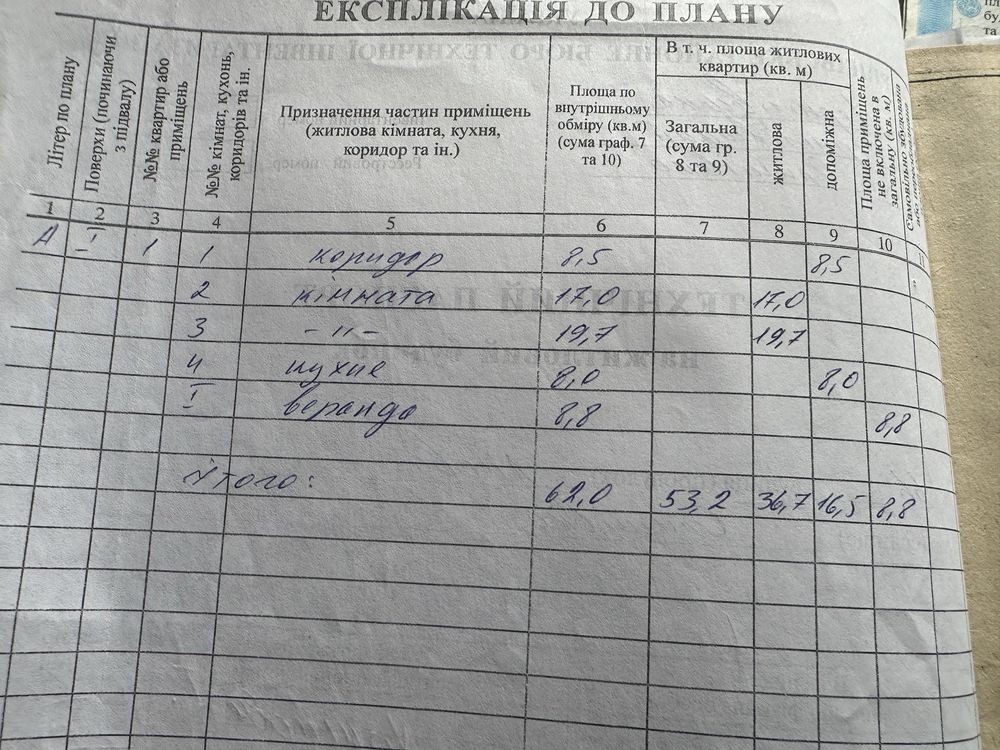 ЕКСПЛІКАЦІЯ ДО ПЛАНУ
Літер по плану
Поверхи (починаючи з підвалу)
№№ квартир або приміщень
№№ кімнат, кухонь, коридорів та ін.
Призначення частин приміщень (житлова кімната, кухня, коридор та ін.)
Площа по внутрішньому обміру (кв.м) (сума граф. 7 та 10)
В т. ч. площа житлових квартир (кв. м)
Загальна (сума гр. 8 та 9)
житлова
допоміжна
Площа приміщень не включена в загальну (кв. м)
Самовільно збудована
1 2 3 4 5 6 7 8 9 10 11
А І 1 1 коридор 8,5 8,5
2 кімната 17,0 17,0
3 - " - 19,7 19,7
4 кухня 8,0 8,0
І веранда 8,8 8,8
Итого: 62,0 53,2 36,7 16,5 8,8